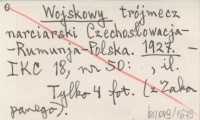 Wojskowy trójmecz
narciarski Czechosłowacja-
-Rumunja-Polska. 1927. -
IKC 18, nr 50: - il.
Tylko 4 fot. (z Zako
panego).